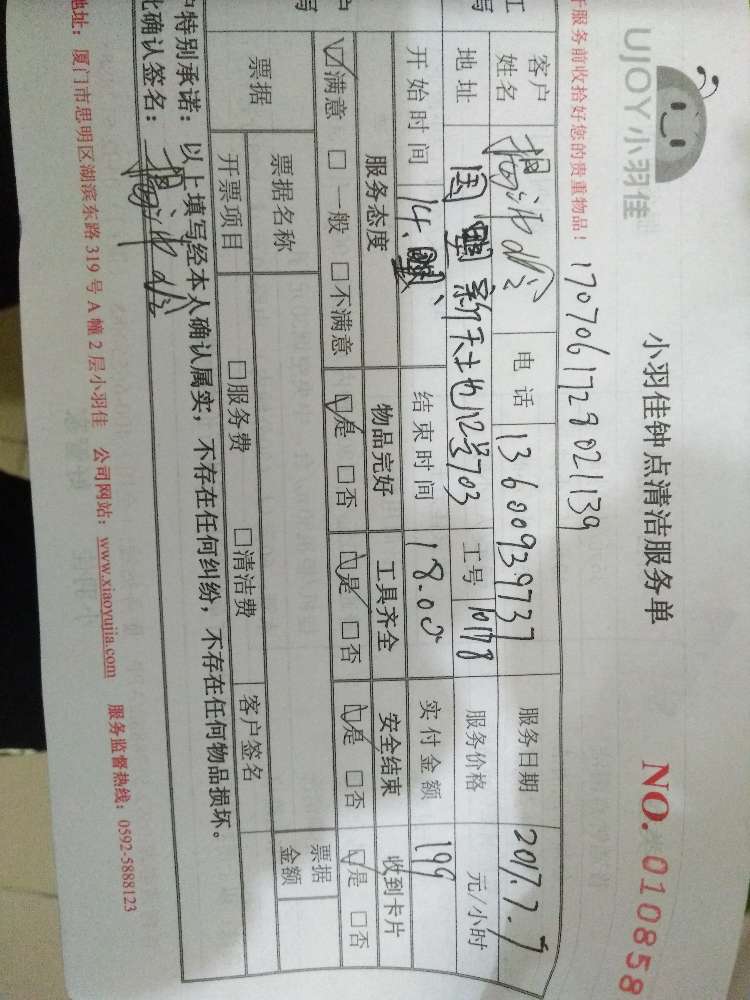 UJOY小羽佳
小羽佳钟点清洁服务单
NO. 010858
服务前收拾好您的贵重物品！
1707061728021139
客户姓名 电话 13600939737 服务日期 2017.7.7
地址 新天地12号703 工号 10178 服务价格 元/小时
开始时间 14. 结束时间 18.00 实付金额 199
服务态度 物品完好 工具齐全 安全结束 收到卡片
☑满意 □一般 □不满意 ☑是 □否 ☑是 □否 ☑是 □否 ☑是 □否
票据 票据名称 票据金额
开票项目 □服务费 □清洁费 客户签名
户特别承诺：以上填写经本人确认属实，不存在任何纠纷，不存在任何物品损坏。
此确认签名：
地址：厦门市思明区湖滨东路319号A幢2层小羽佳 公司网站：www.xiaoyujia.com 服务监督热线：0592-5888123